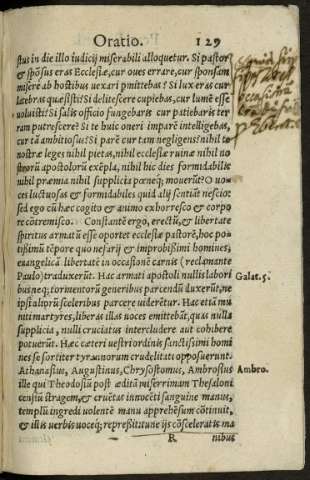 Oratio. 129
stus in die illo iudicij miserabili alloquetur. Si pastor
& spōsus eras Ecclesiæ, cur oues errare, cur sponsam
misere ab hostibus uexari pmittebas? Si lux eras cur
latebras quæsisti? Si delitescere cupiebas, cur lumē esse
uoluisti? Si salis officio fungebaris cur patiebaris ter
ram putrescere? Si te huic oneri imparē intelligebas,
cur tā ambitiosus? Si parē cur tam negligens? nihil te
nostræ leges nihil pietas, nihil ecclesiæ ruinæ nihil no
strorū apostolorū exēpla, nihil hic dies formidabilis
nihil præmia nihil supplicia pœneq; mouerūt? O uo=
ces luctuosas & formidabiles quid alij sentiāt nescio:
sed ego cū hæc cogito & animo exhorresco & corpo
re cōtremisco. Constantē ergo, erectū, & libertate
spiritus armatū esse oportet ecclesiæ pastorē, hoc po=
tissimū tēpore quo nefarij & improbissimi homines,
euangelicā libertatē in occasionē carnis (reclamante
Paulo) traduxerūt. Hac armati apostoli nullis labori Galat. 5.
bus neq; tormentorū generibus parcendū duxerūt, ne
ipsi aliprū sceleribus parcere uiderētur. Hac etiā mu
niti martyres, liberas illas uoces emittebāt, quas nulla
supplicia, nulli cruciatus intercludere aut cohibere
potuerūt. Hæc cæteri uestri ordinis sanctissimi homi
nes se fortiter tyrannorum crudelitati opposuerunt.
Athanasius, Augustinus, Chrysostomus, Ambrosius Ambro.
ille qui Theodosiū post æditā miserrimam Thesaloni
censiū stragem, & cruētas innocēti sanguine manus,
templū ingredi uolentē manu apprehēsum cōtinuit,
& illis uerbis uoceq; repressit: tune ijs cōsceleratis ma
R nibus